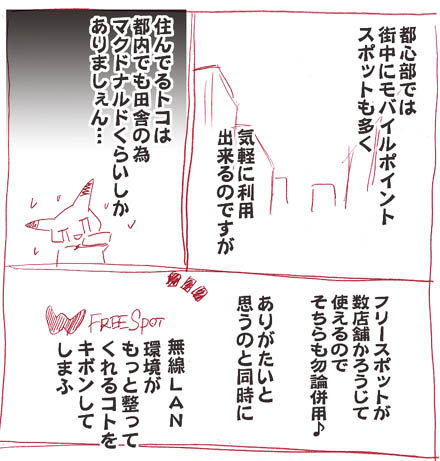 都心部では
街中にモバイルポイント
スポットも多く
気軽に利用
出来るのですが
住んでるトコは
都内でも田舎の為
マクドナルドくらいしか
ありましぇん…
フリースポットが
数店舗かろうじて
使えるので
そちらも勿論併用♪
ありがたいと
思うのと同時に
FREESPOT
無線LAN
環境が
もっと整って
くれるコトを
キボンして
しまふ